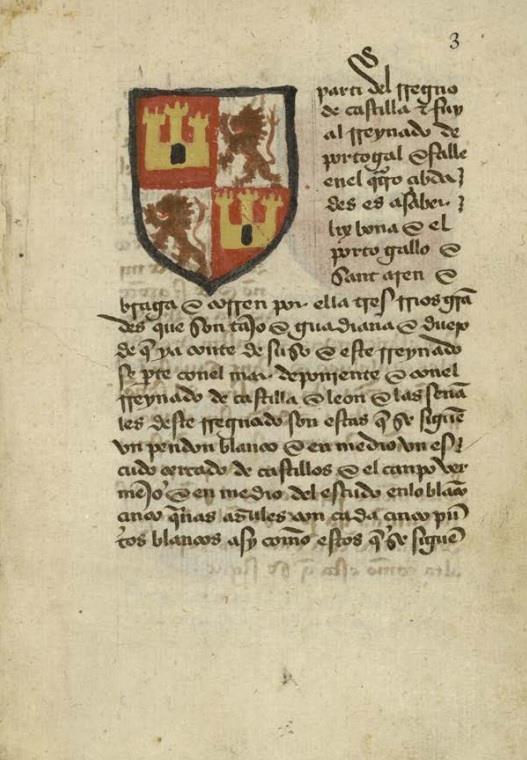 3
parti del rregno
de castilla & fuy
al rreynado de
portogal & falle
en el q̃tro çibda
des es a saber
lixbona & el
porto gallo &
sant aren &
braga & corren por ella tres rrios grã
des que son tajo & guadiana & duero
de q̃ ya conte de suso & este rreynado
se p̱te con el mar de poniente & con el
rreynado de castilla & leon & las señã
les deste rregnado son estas q̃ se siguẽ
vn pendon blanco & en medio vn es
cudo cercado de castillos & el canpo ver
mejo & en medio del escudo en lo blãco
cinco q̃nas azules con cada cinco pũ
tos blancos asy como estos q̃ se siguẽ